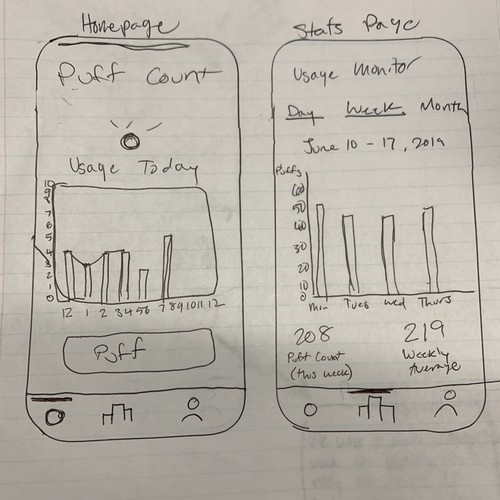 Homepage
Puff Count
Usage Today
10
9
8
7
6
5
4
3
2
1
0
12 1 2 3 4 5 6 7 8 9 10 11 12
Puff
Stats Page
Usage Monitor
Day Week Month
June 10 - 17, 2019
Puffs
60
50
40
30
20
10
0
Mon Tues Wed Thurs
208
Puff Count
(this week)
219
Weekly
Average